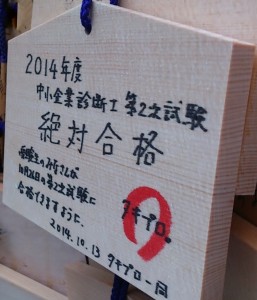 2014年度
中小企業診断士 第2次試験
絶対合格
受験生のみなさんが
10月26日の第2次試験に
合格できますように。
タキプロ。
2014.10.13 タキプロ一同